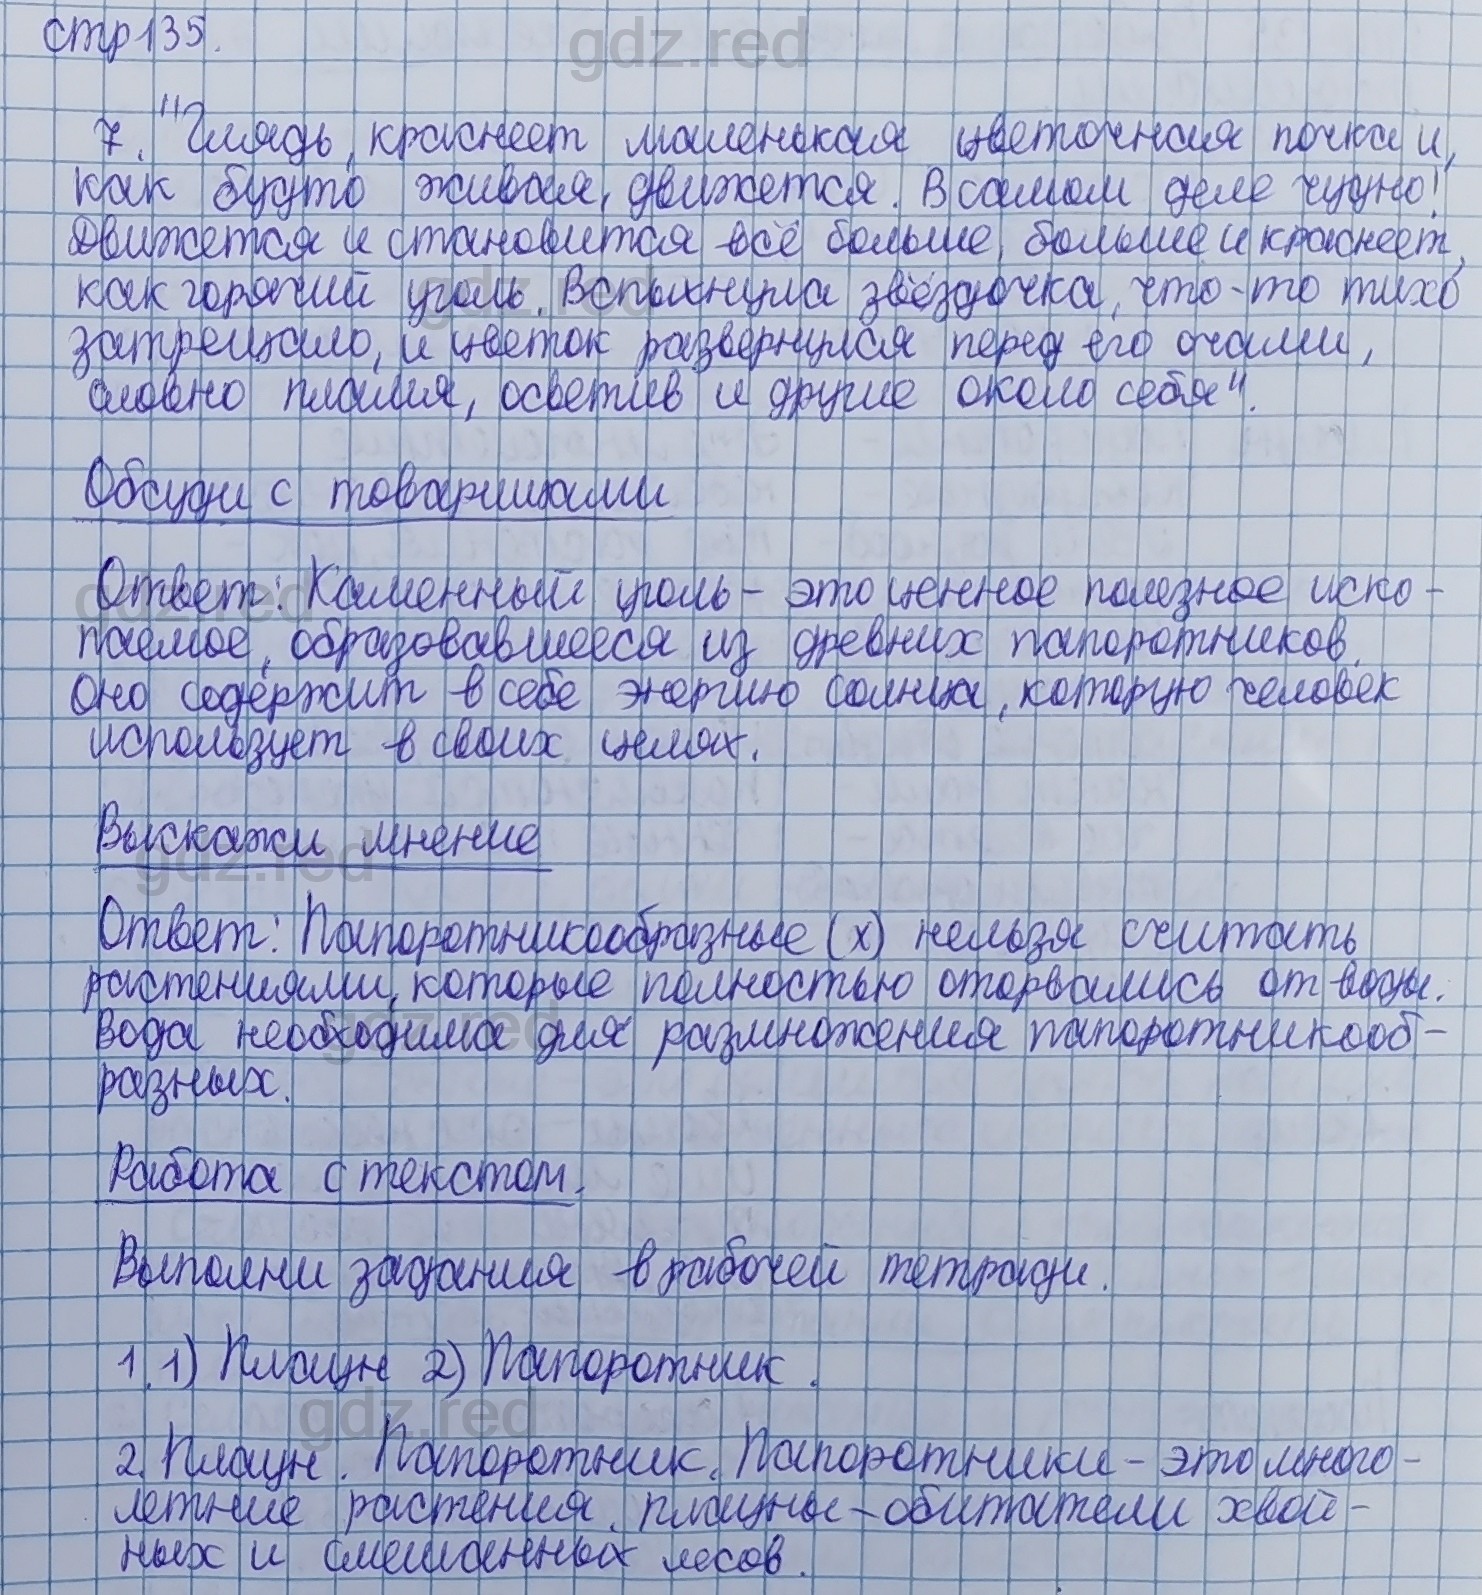 стр 135.
7. "Глядь, краснеет маленькая цветочная почка и,
как будто живая, движется. В самом деле чудно!
Движется и становится всё больше, больше и краснеет,
как горячий уголь. Вспыхнула звёздочка, что-то тихо
затрещало, и цветок развернулся перед его очами,
словно пламя, осветив и другие около себя".
Обсуди с товарищами
Ответ: Каменный уголь - это ценное полезное иско-
паемое, образовавшееся из древних папоротников.
Оно содержит в себе энергию солнца, которую человек
использует в своих целях.
Выскажи мнение
Ответ: Папоротникообразные (х) нельзя считать
растениями, которые полностью оторвались от воды.
Вода необходима для размножения папоротникооб-
разных.
Работа с текстом.
Выполни задания в рабочей тетради.
1. 1) Плаун 2) Папоротник.
2. Плаун. Папоротник. Папоротники - это много-
летние растения, плауны - обитатели хвой-
ных и смешанных лесов.
gdz.red
gdz.red
gdz.red
gdz.red
gdz.red
gdz.red